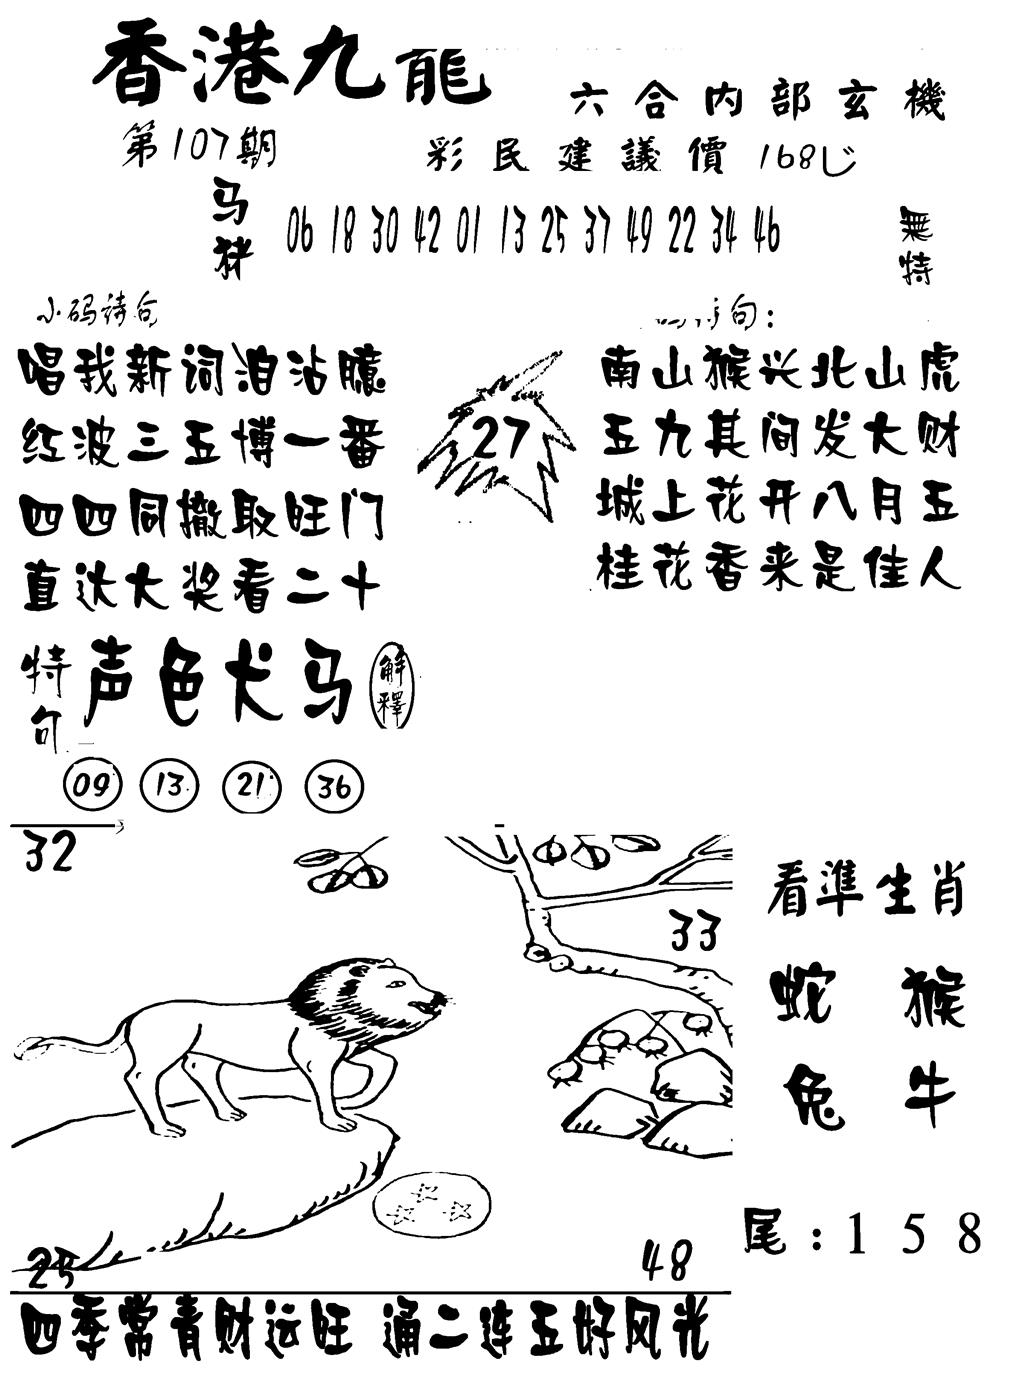 香港九龍
六合内部玄機
第107期
彩民建議價168
马猪
06 18 30 42 01 13 25 37 49 22 34 46
無特
小码诗句
句:
唱我新词泪沾臆
红波三五博一番
四四同撤取旺门
直达大奖看二十
27
南山猴兴北山虎
五九其间发大财
城上花开八月五
桂花香来是佳人
特句
声色犬马
解釋
09 13 21 36
32
33
看準生肖
蛇 猴
兔 牛
尾:1 5 8
25
48
四季常青财运旺 通二连五好风光